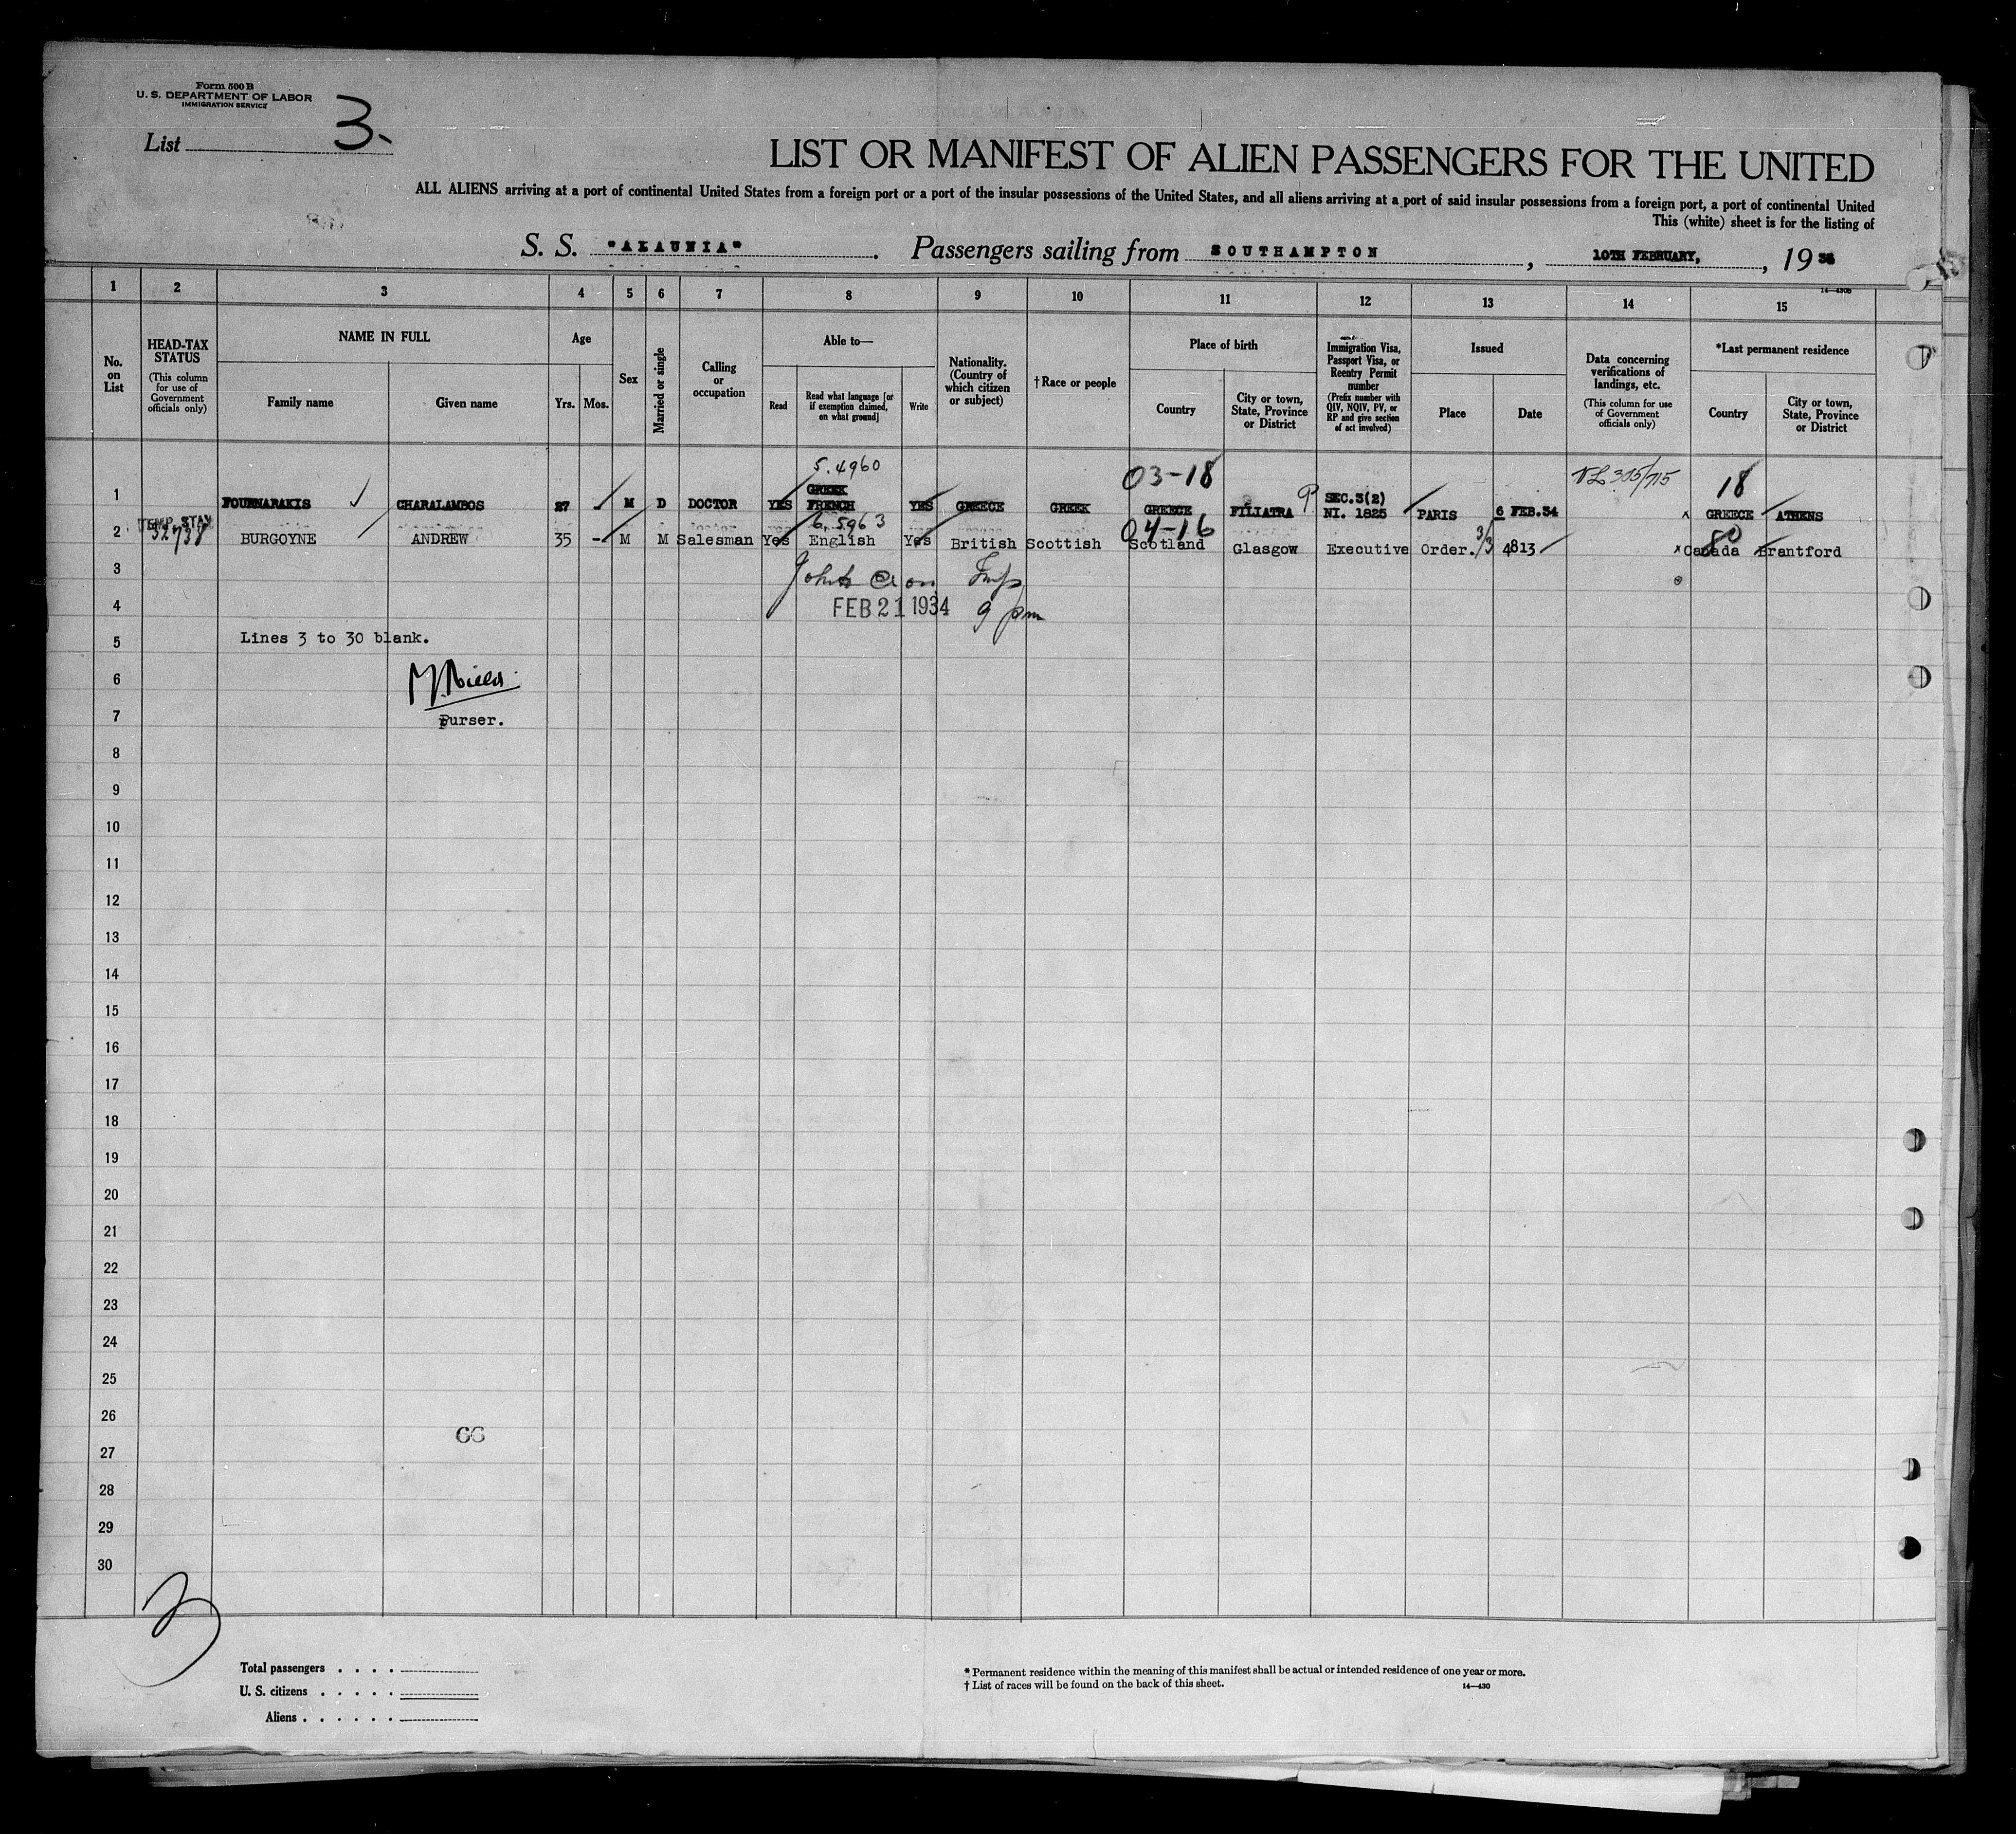 Form 500B
U. S. DEPARTMENT OF LABOR
IMMIGRATION SERVICE
List 3.
LIST OR MANIFEST OF ALIEN PASSENGERS FOR THE UNITED
ALL ALIENS arriving at a port of continental United States from a foreign port or a port of the insular possessions of the United States, and all aliens arriving at a port of said insular possessions from a foreign port, a port of continental United
This (white) sheet is for the listing of
S. S. "ALAUNIA". Passengers sailing from SOUTHAMPTON, 10TH FEBRUARY, 19
14—430B
1 2 3 4 5 6 7 8 9 10 11 12 13 14 15
No. on List
HEAD-TAX STATUS
(This column for use of Government officials only)
NAME IN FULL
Family name
Given name
Age
Yrs. Mos.
Sex
Married or single
Calling or occupation
Able to—
Read
Read what language [or if exemption claimed, on what ground]
Write
Nationality. (Country of which citizen or subject)
† Race or people
Place of birth
Country
City or town, State, Province or District
Immigration Visa, Passport Visa, or Reentry Permit number
(Prefix number with QIV, NQIV, PV, or RP and give section of act involved)
Issued
Place
Date
Data concerning verifications of landings, etc.
(This column for use of Government officials only)
*Last permanent residence
Country
City or town, State, Province or District
5.4960 03-18 18
GREEK SEC.3(2)
1 FOURNARAKIS CHARALAMBOS 27 - M D DOCTOR YES FRENCH YES GREECE GREEK GREECE FILIATRA NI. 1825 PARIS 6 FEB.34 GREECE ATHENS
TEMP. STAY 6.5963 04-16
2 BURGOYNE ANDREW 35 - M M Salesman Yes English Yes British Scottish Scotland Glasgow Executive Order. 4813 x Canada Brantford
3
FEB 21 1934 9 pm
4
5 Lines 3 to 30 blank.
6
7 Purser.
8
9
10
11
12
13
14
15
16
17
18
19
20
21
22
23
24
25
26
27
28
29
30
3
Total passengers . . . .
U. S. citizens . . . . .
Aliens . . . . . .
* Permanent residence within the meaning of this manifest shall be actual or intended residence of one year or more.
† List of races will be found on the back of this sheet.
14—430